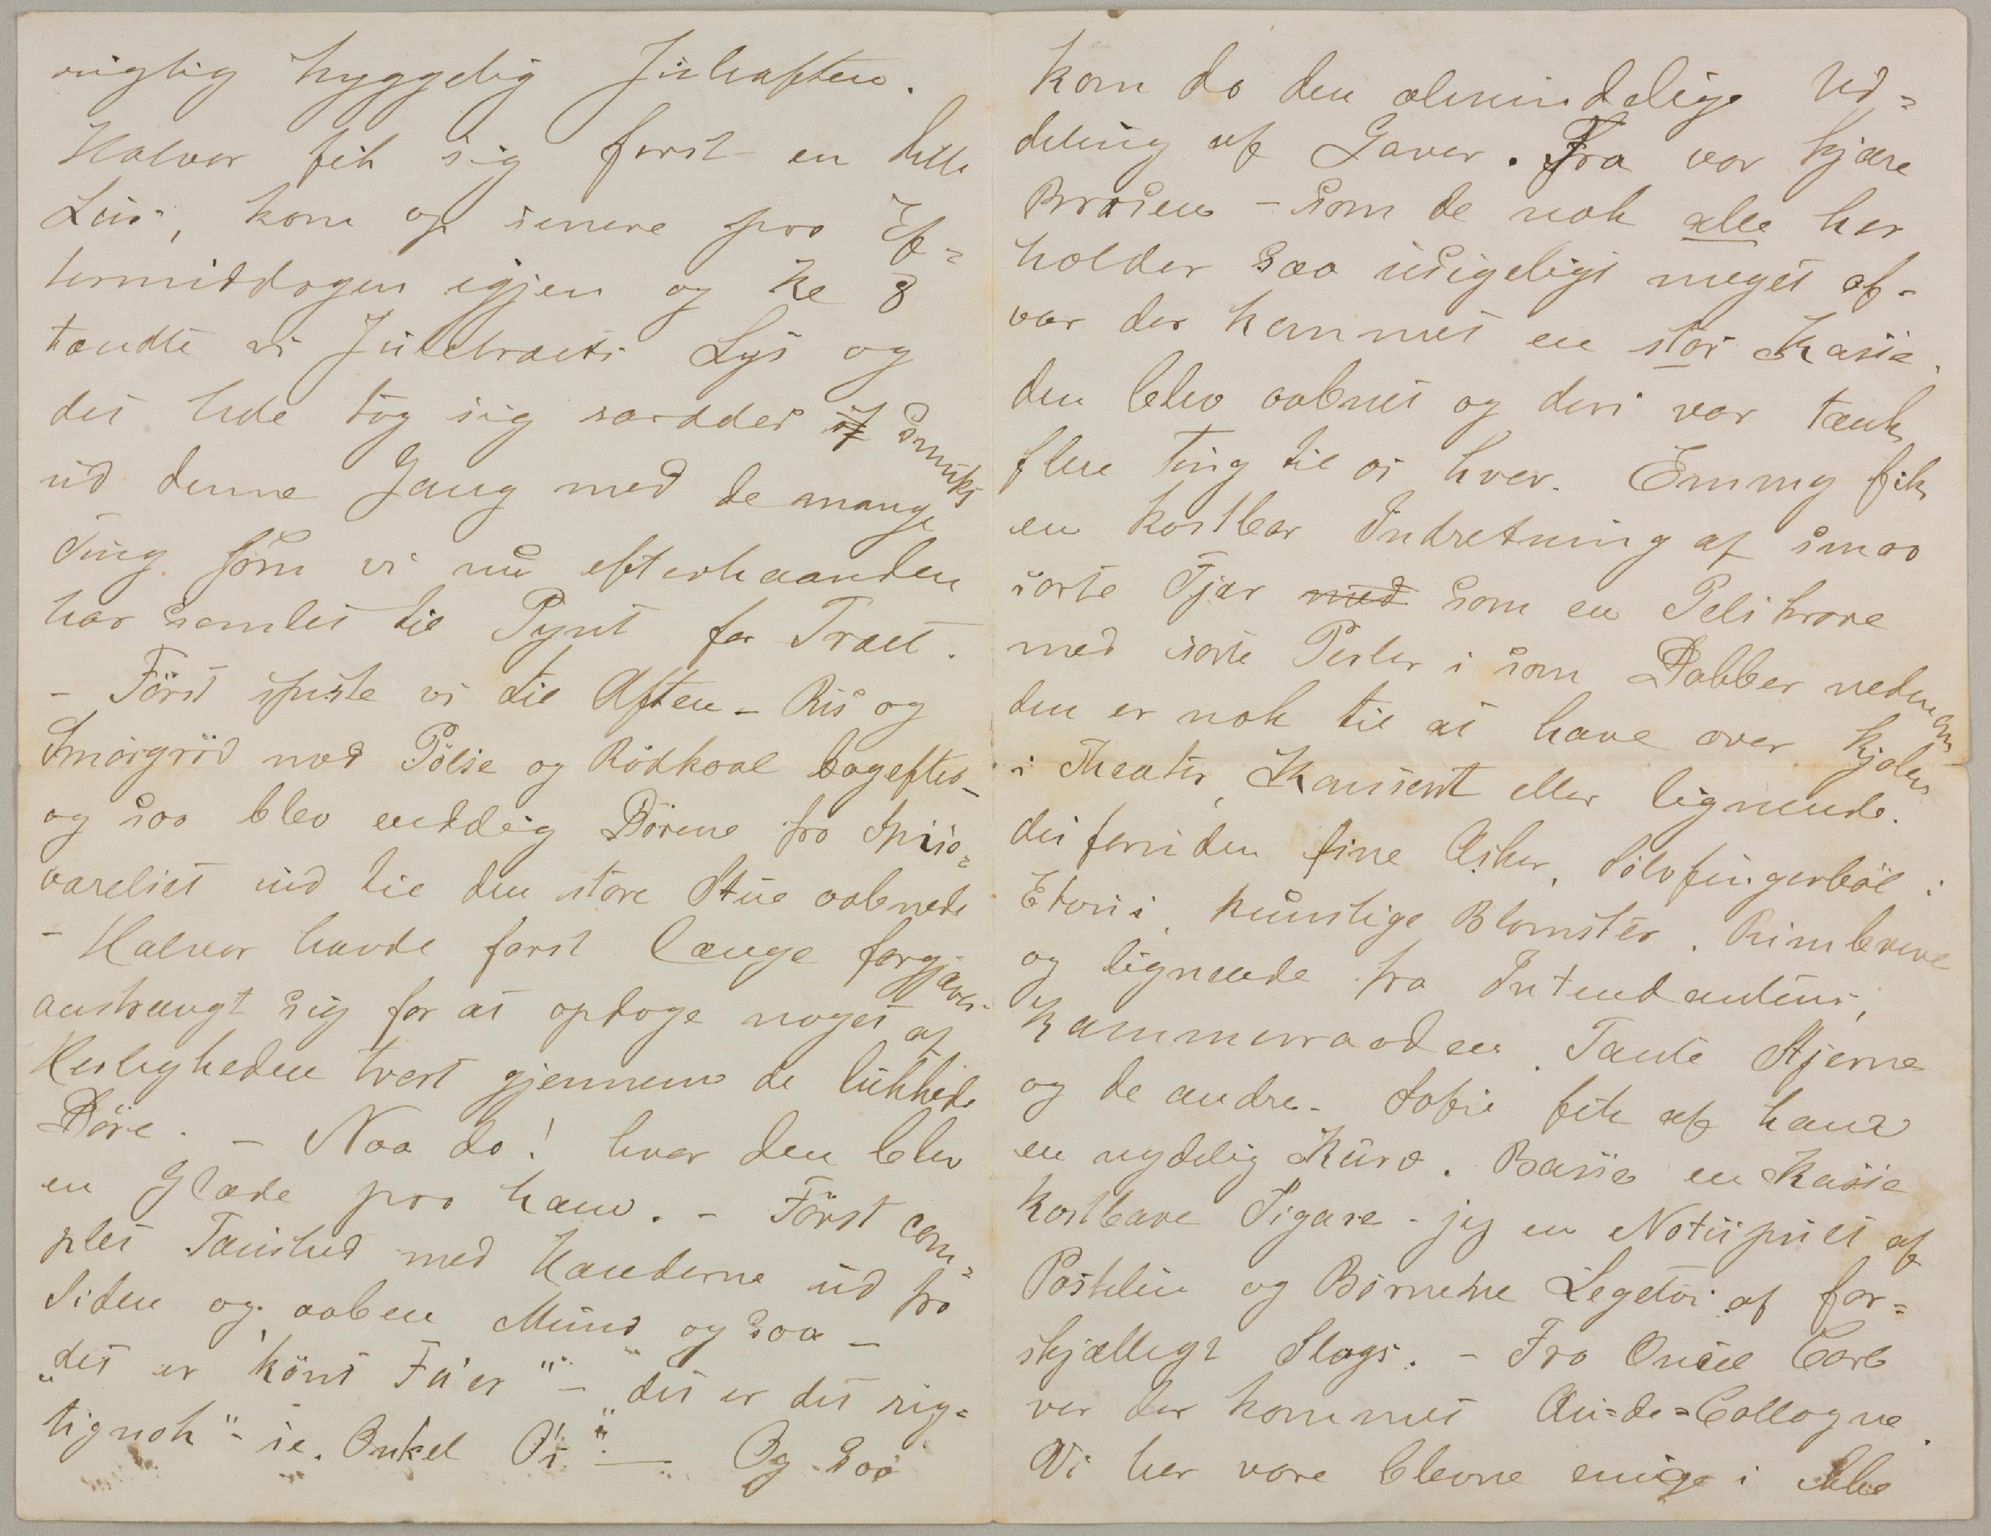 rigtig hyggelig Juleaften.
Halvor fik sig først en lille
Luur, kom op senere paa Ef=
termiddagen igjen og Kl 8
tændte vi Juletræets Lys og
det hele tog sig særdeles smukt
ud denne Gang med de mange
Ting som vi nu efterhaanden
har samlet til Pynt for Træet.
- Först spiste vi til Aften - Ris og
Smörgröd med Pölse og Rödkaal bagefter -
og saa blev endelig Dörene fra Spise=
værelset ind til den store Stue aabnede
- Halvor havde først længe forgjæves
anstrængt sig for at opdage noget af
Herligheden tvert gjennem de lukkede
Döre. - Naa da! hvor den blev
en Glæde paa ham. - Först com=
plet Taushed med Hænderne ud fra
Siden og aaben Mund og saa -
"det er könt Fa'er" - "det er det rig=
tignok" - se. Onkel O's" - Og saa
kom da den almindelige Ud=
deling af Gaver. Fra vor kjære
Brosen - som de nok alle her
holder saa usigeligt meget af -
var der kommet en stor Kasse.
den blev aabnet og deri var tænk
flere Ting til os hver. Emmy fik
en kostbar Indretning af smaa
sorte Fjær med som en Pelskrave
med sorte Perler i som Dobber nedenom
den er nok til at have over Kjolen
i Theater, Konsert eller lignende.
desforuden fine Æsker, Sölvfingerböl i
Etuui, kunstige Blomster. Rimbreve
og lignende fra Intendantens,
Kammerraaden. Tante Stjerne
og de andre. Sofie fik af ham
en nydelig Kurv. Basse en Kasse
kostbare Sigare - jeg en Notitspult af
Postelin og Börnene Legetöi af for=
skjælligt Slags. - Fra Onkel Carl
var der kommet Au=de=Collogne.
Vi her vare blevne enige i ikke